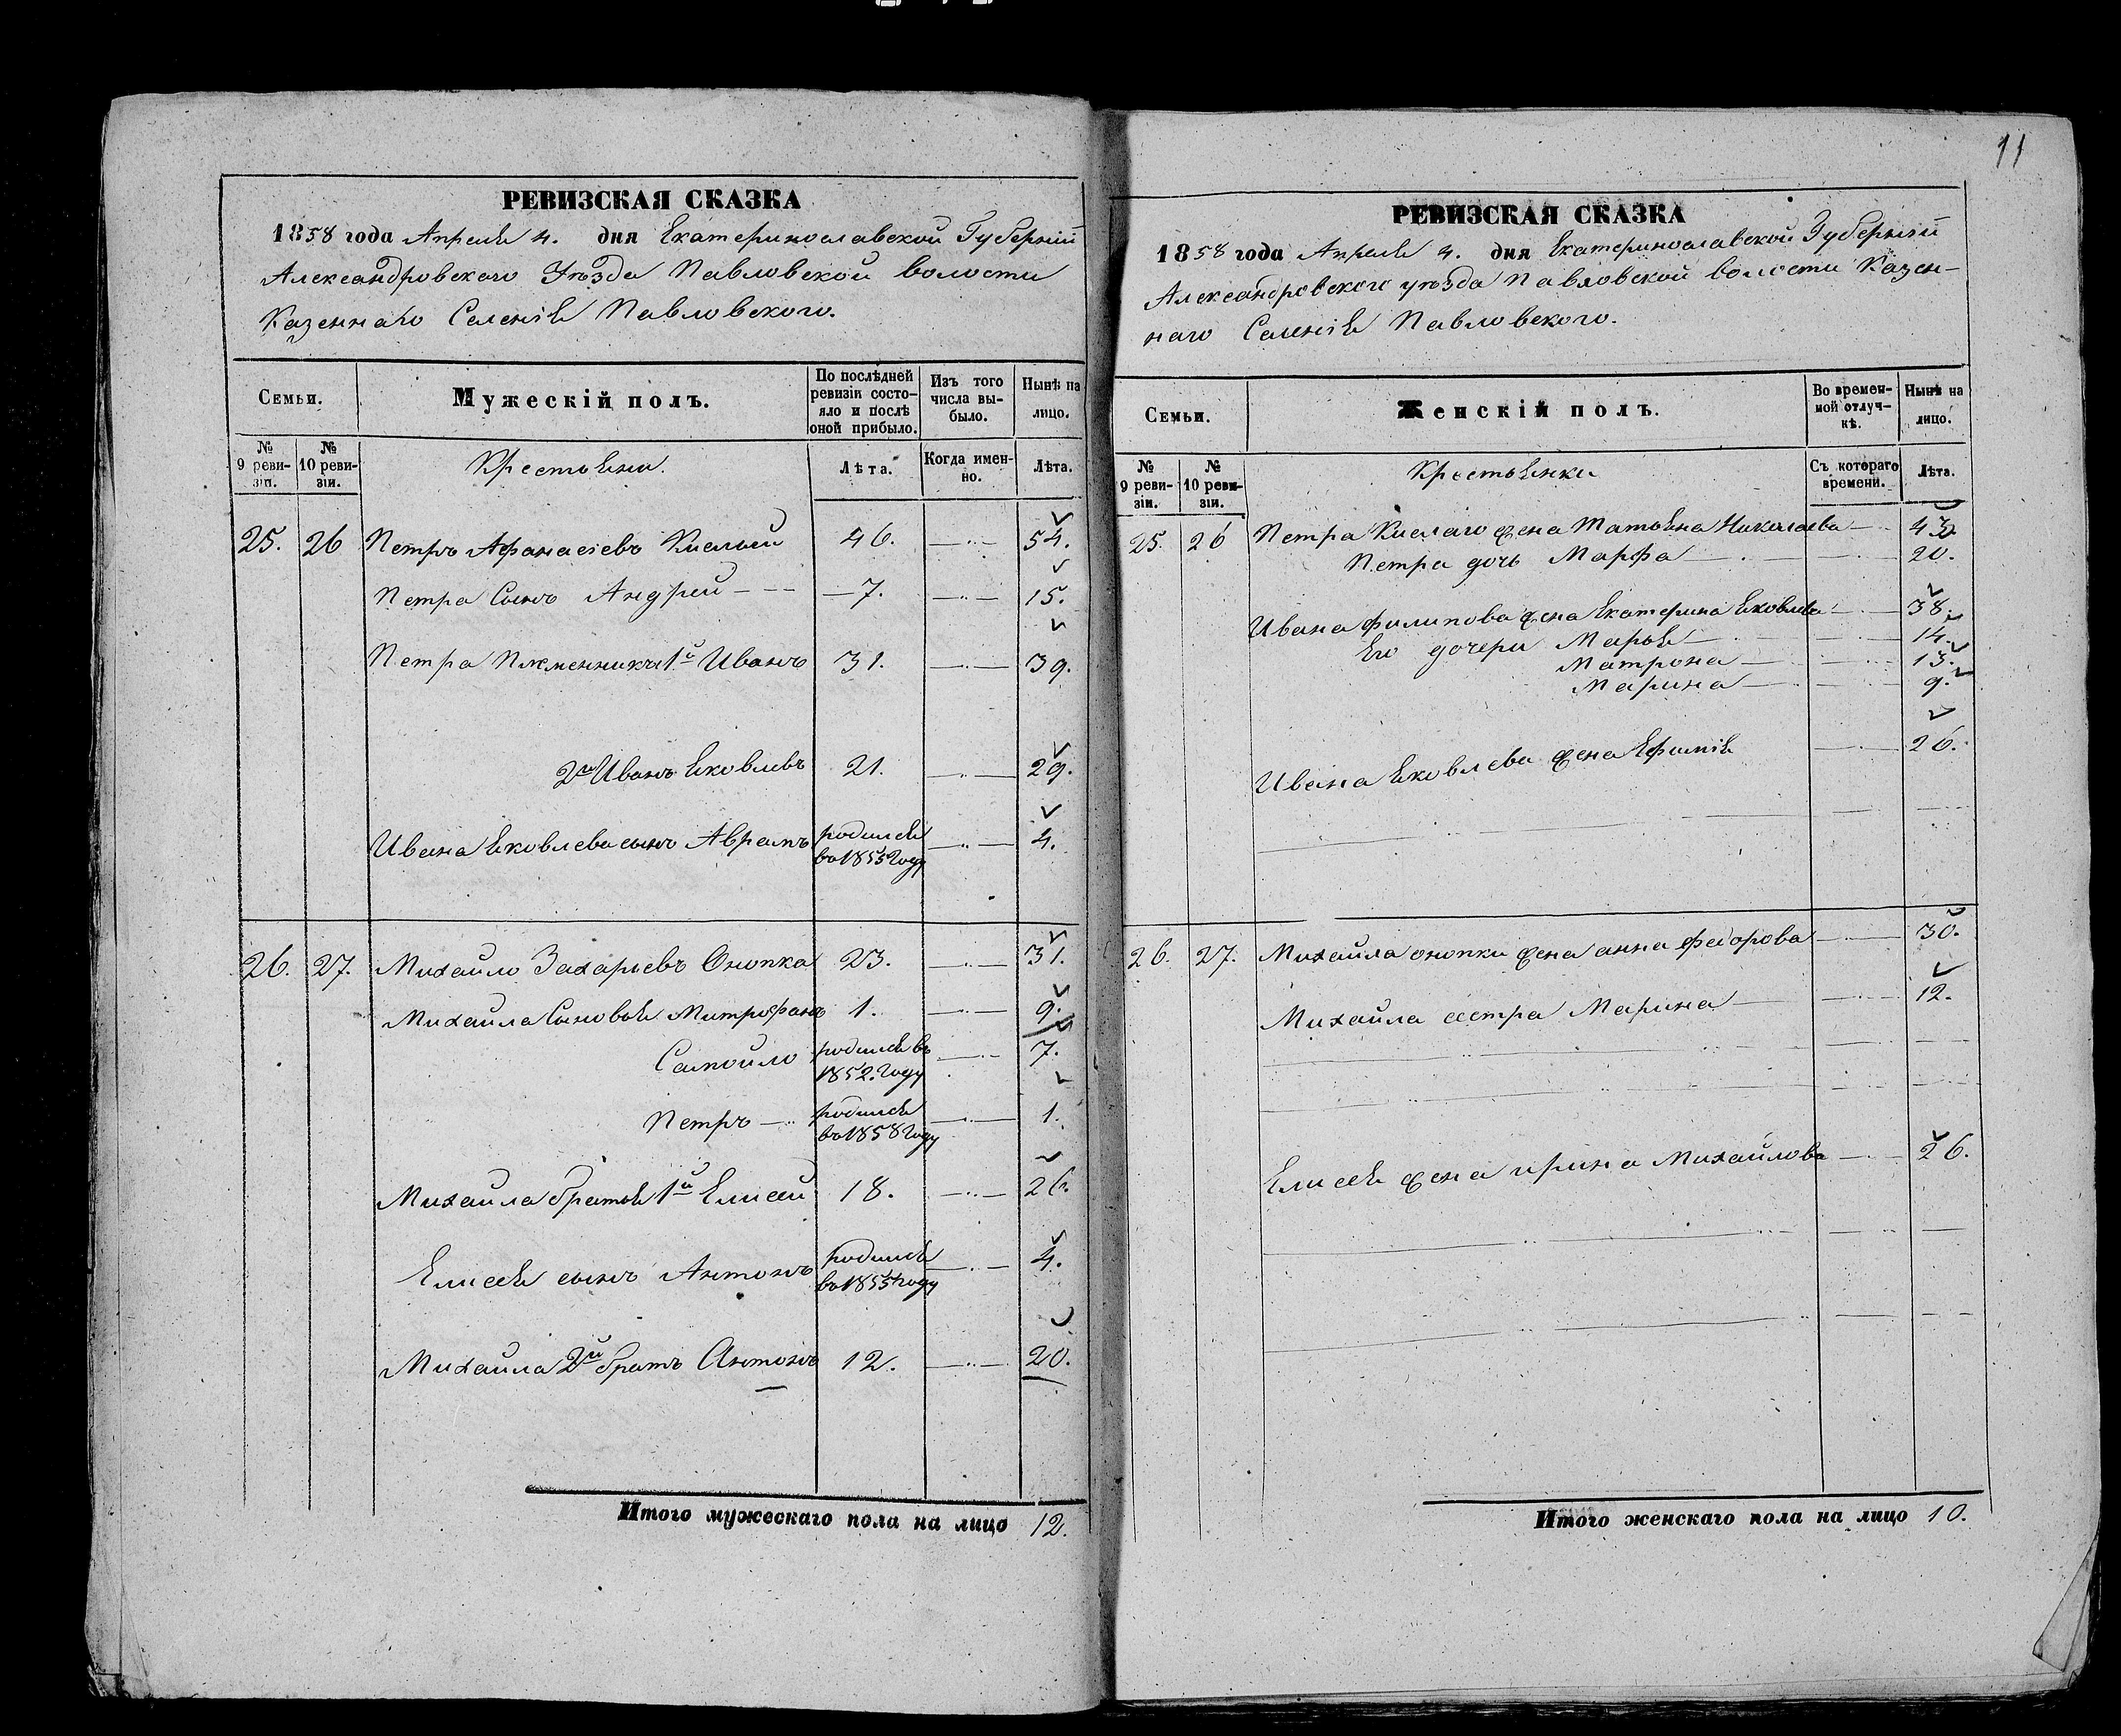 РЕВИЗСКАЯ СКАЗКА
1858 года Апреля 4. дня Екатеринославской Губерніи
Александровского Уѣзда Павловской волости
Казеннаго Селенія Павловского.
Семьи. Мужескій полъ. По послѣдней ревизіи состояло и послѣ оной прибыло. Изъ того числа выбыло. Нынѣ на лицо.
№ 9 ревизіи. № 10 ревизіи. Крестьяни. Лѣта. Когда именно. Лѣта.
25. 26 Петръ Афанасіевъ Кислый 46. 54.
Петра Сынъ Андрей 7. 15.
Петра Племенники 1й Иванъ 31. 39.
2й Иванъ Яковлевъ 21. 29.
Ивана Яковлева сынъ Аврамъ родился въ 1855 году 4.
26. 27. Михайло Захарьевъ Онопка 23. 31.
Михайла Сыновья Митрофанъ 1. 9.
Самойло родился въ 1852. году 7.
Петръ родился въ 1858 году 1.
Михайла братья 1й Елисей 18. 26.
Елисея сынъ Антонъ родился въ 1855 году 4.
Михайла 2й братъ Антонъ 12. 20.
Итого мужескаго пола на лицо 12.
11
РЕВИЗСКАЯ СКАЗКА
1858 года Апреля 4. дня Екатеринославской Губерніи
Александровского уѣзда Павловской волости Казен-
наго Селенія Павловского.
Семьи. Женскій полъ. Во временной отлучкѣ. Нынѣ на лицо.
№ 9 ревизіи. № 10 ревизіи. Крестьянки Съ котораго времени. Лѣта.
25. 26 Петра Кислаго жена Татьяна Николаева
Петра дочь Марфа 20.
Ивана Филипова жена Екатерина Яковлева 38.
Его дочери Марья 14.
Матрона 13.
Марина 9.
Ивана Яковлева жена Ефимія 26.
26. 27. Михайла онопки жена анна федорова 30.
Михайла сестра Марина 12.
Елисея жена ирина Михайлова 26.
Итого женскаго пола на лицо 10.